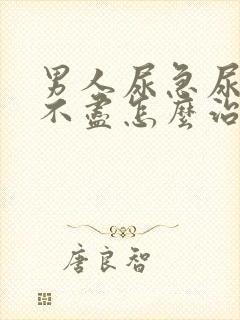 男人尿急尿
不盡怎麼治
唐良智